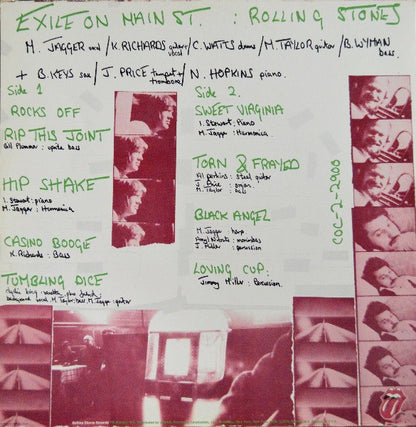 EXILE ON MAIN ST. : ROLLING STONES
M. JAGGER vocal / K. RICHARDS guitar + vocal / C. WATTS drums / M. TAYLOR guitar / B. WYMAN bass.
+ B. KEYS sax / J. PRICE trumpet + trombone / N. HOPKINS piano.
Side 1
ROCKS OFF
RIP THIS JOINT
Bill Plummer : upright bass
HIP SHAKE
I. Stewart : piano
M. Jagger : Harmonica
CASINO BOOGIE
K. Richards : Bass
TUMBLING DICE
M. Taylor : bass. M. Jagger : guitar
Side 2.
SWEET VIRGINIA
I. Stewart : Piano
M. Jagger : Harmonica
TORN & FRAYED
Al Perkins : Steel guitar
J. Price : organ
M. Taylor : bass
BLACK ANGEL
M. Jagger : harp
: marimbas
J. Miller : percussion
LOVING CUP :
Jimmy Miller : Percussion.
COC-2-2900
Rolling Stones Records